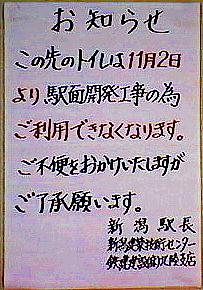 お知らせ
この先のトイレは11月2日
より駅面開発工事の為
ご利用できなくなります。
ご不便をおかけいたしますが
ご了承願います。
新潟駅長
新潟建築技術センター
鉄建建設
支店